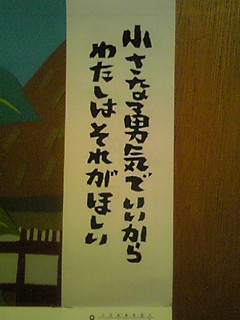 小さな勇気でいいから
わたしはそれがほしい